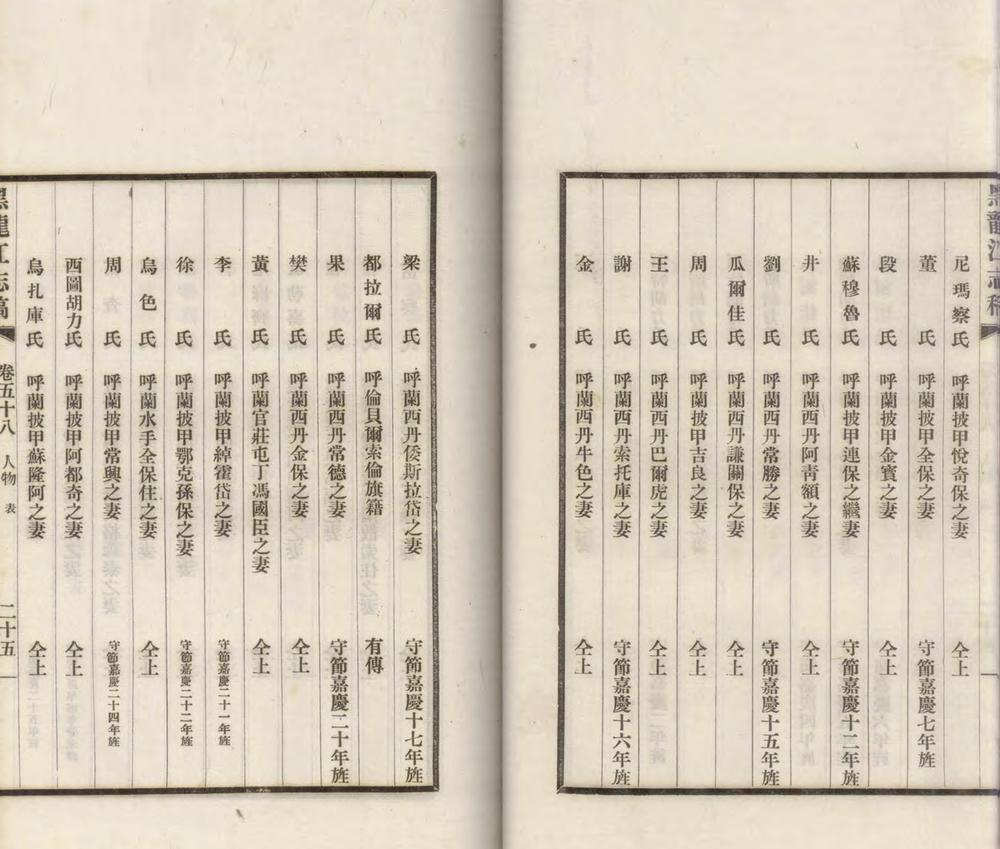 黑龍江志稿
尼瑪察氏 呼蘭披甲悅奇保之妻 仝上
董氏 呼蘭披甲全保之妻 守節嘉慶七年旌
段氏 呼蘭披甲金寶之妻 仝上
蘇穆魯氏 呼蘭披甲連保之繼妻 守節嘉慶十二年旌
井氏 呼蘭西丹阿靑額之妻 仝上
劉氏 呼蘭西丹常勝之妻 守節嘉慶十五年旌
瓜爾佳氏 呼蘭西丹謙關保之妻 仝上
周氏 呼蘭披甲吉良之妻 仝上
王氏 呼蘭西丹巴爾虎之妻 仝上
謝氏 呼蘭西丹索托庫之妻 守節嘉慶十六年旌
金氏 呼蘭西丹牛色之妻 仝上
梁氏 呼蘭西丹倭斯拉岱之妻 守節嘉慶十七年旌
都拉爾氏 呼倫貝爾索倫旗籍 有傳
果氏 呼蘭西丹常德之妻 守節嘉慶二十年旌
樊氏 呼蘭西丹金保之妻 仝上
黃氏 呼蘭官莊屯丁馮國臣之妻 仝上
李氏 呼蘭披甲綽霍岱之妻 守節嘉慶二十一年旌
徐氏 呼蘭披甲鄂克孫保之妻 守節嘉慶二十二年旌
烏色氏 呼蘭水手全保住之妻 仝上
周氏 呼蘭披甲常興之妻 守節嘉慶二十四年旌
西圖胡力氏 呼蘭披甲阿都奇之妻 仝上
烏扎庫氏 呼蘭披甲蘇隆阿之妻 仝上
黑龍江志稿 卷五十八 人物 表 二十五